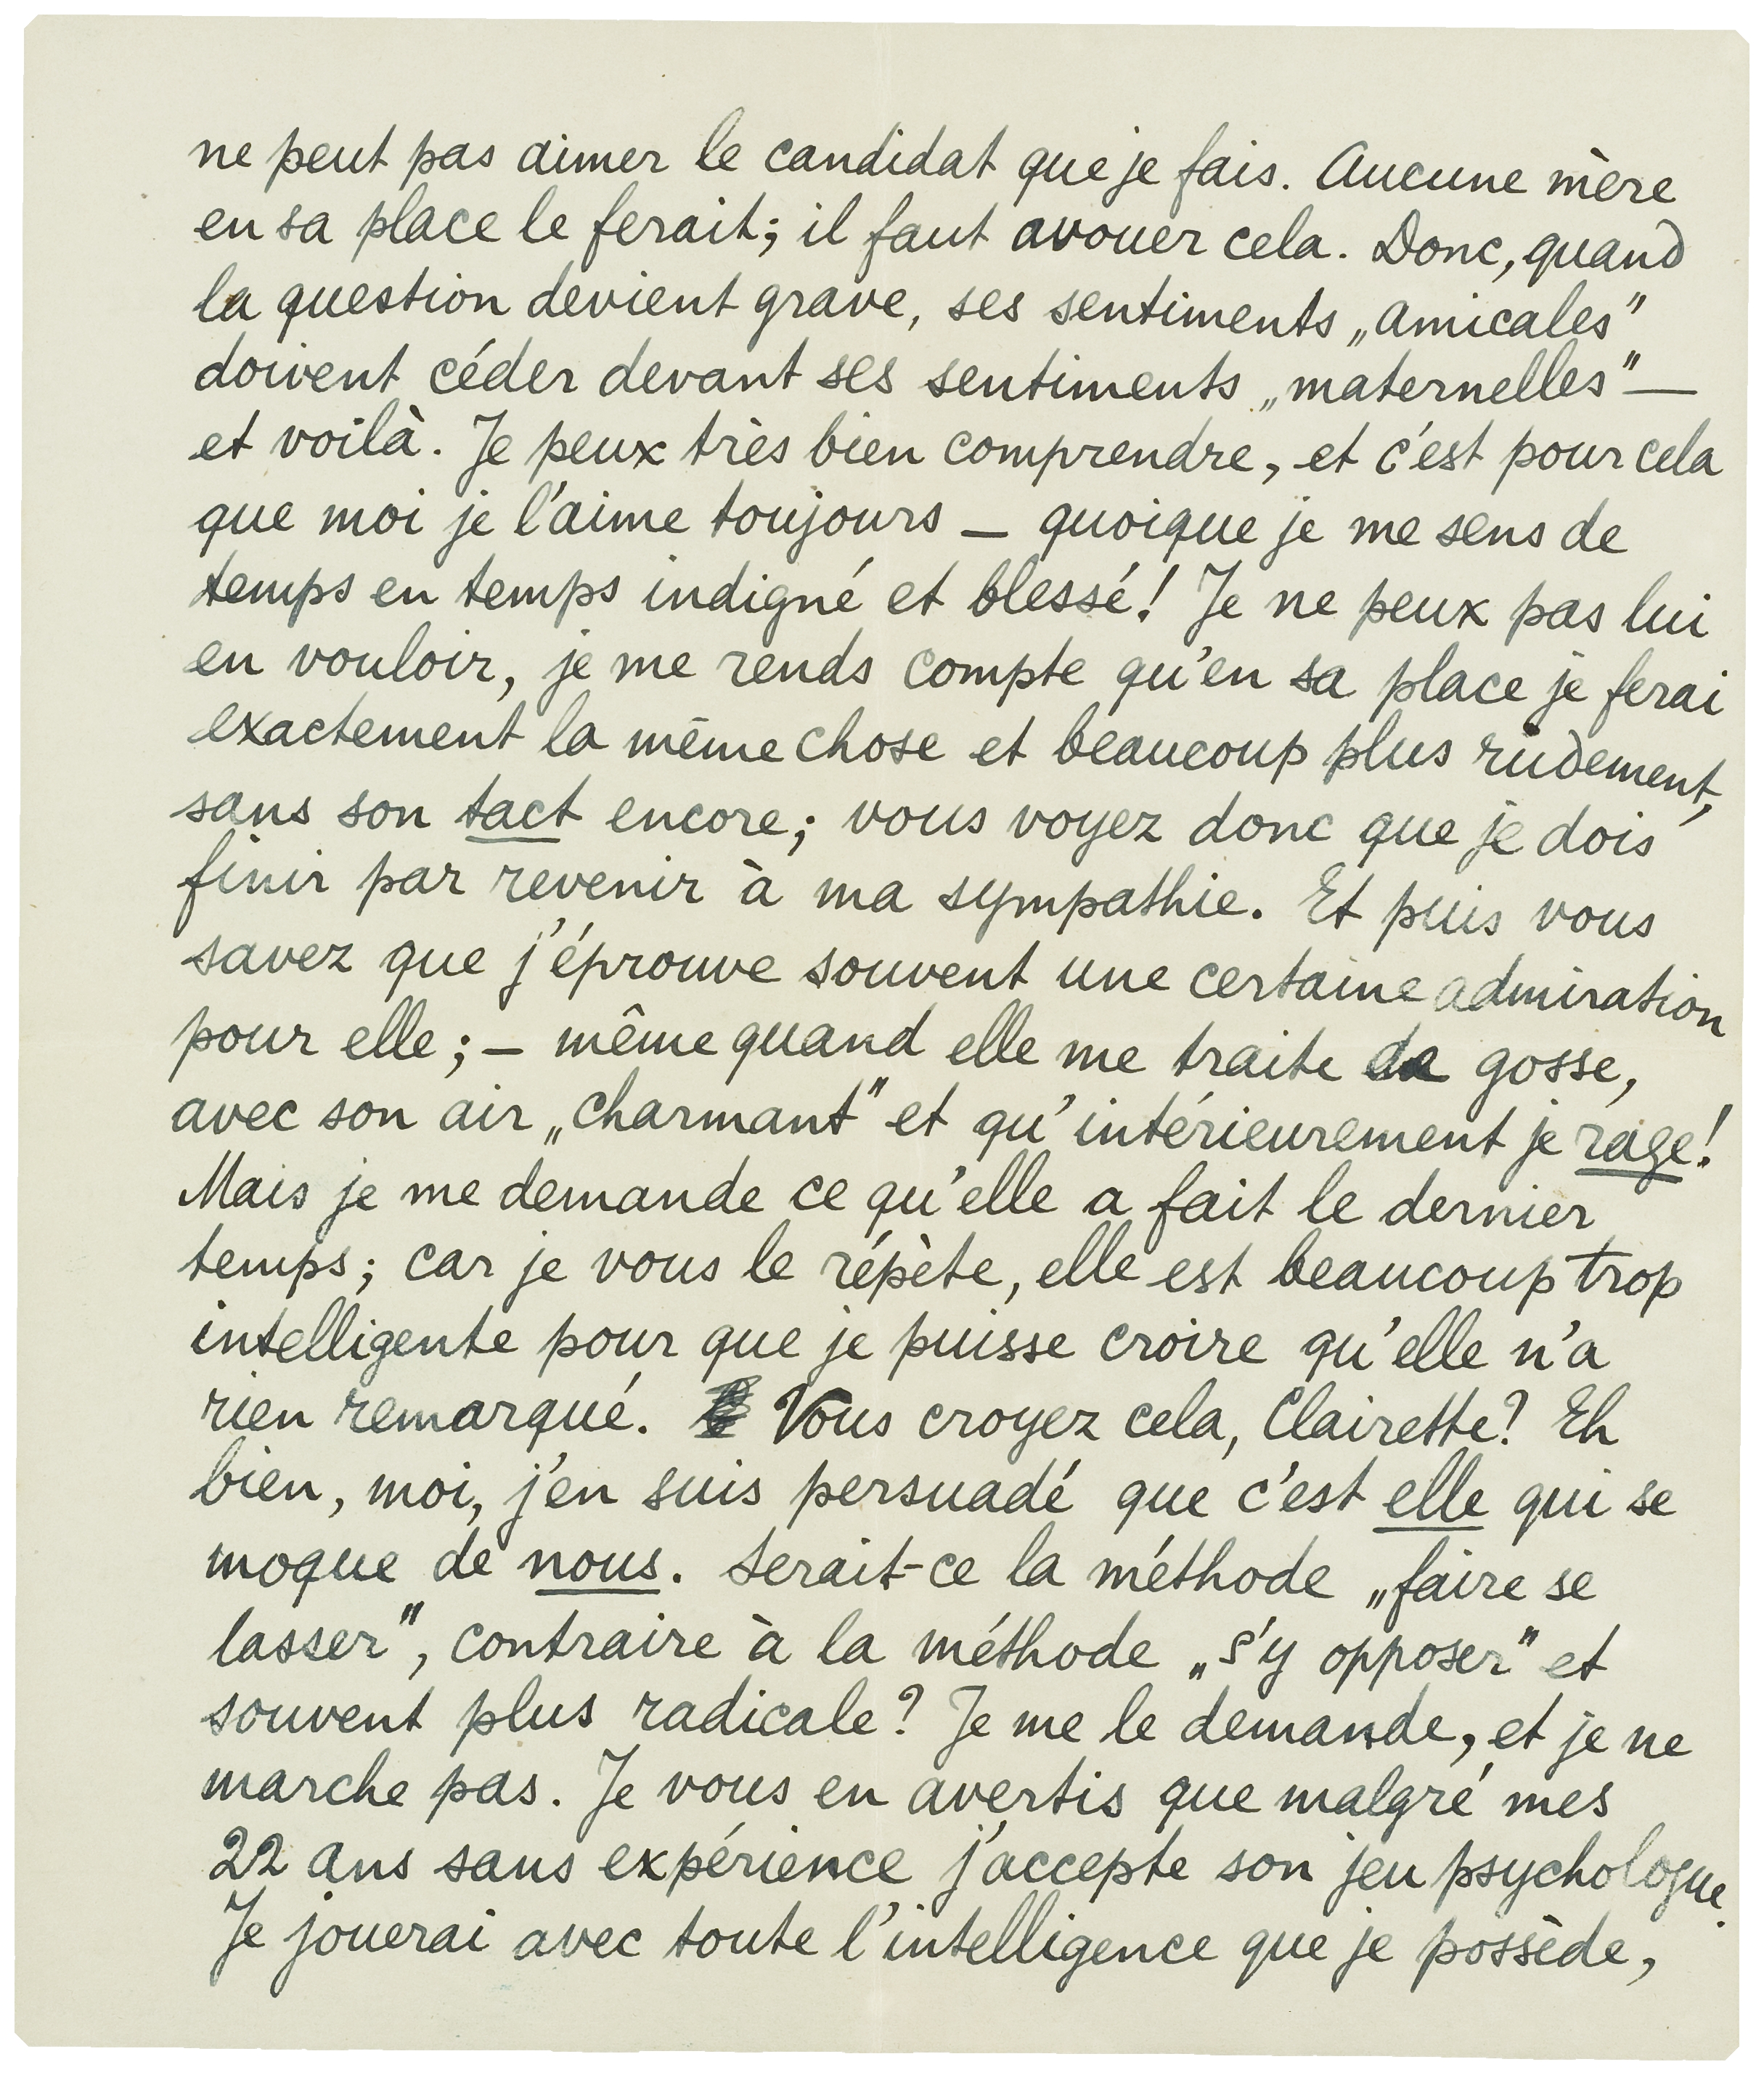 ne peut pas aimer le candidat que je fais. Aucune mère
en sa place le ferait; il faut avouer cela. Donc, quand
la question devient grave, ses sentiments „amicales”
doivent céder devant ses sentiments „maternelles” —
et voilà. Je peux très bien comprendre, et c'est pour cela
que moi je l'aime toujours — quoique je me sens de
temps en temps indigné et blessé! Je ne peux pas lui
en vouloir, je me rends compte qu'en sa place je ferai
exactement la même chose et beaucoup plus rudement,
sans son tact encore; vous voyez donc que je dois
finir par revenir à ma sympathie. Et puis vous
savez que j'éprouve souvent une certaine admiration
pour elle; — même quand elle me traite de gosse,
avec son air „charmant” et qu'intérieurement je rage!
Mais je me demande ce qu'elle a fait le dernier
temps; car je vous le répète, elle est beaucoup trop
intelligente pour que je puisse croire qu'elle n'a
rien remarqué. Vous croyez cela, Clairette? Eh
bien, moi, j'en suis persuadé que c'est elle qui se
moque de nous. Serait-ce la méthode „faire se
lasser”, contraire à la méthode „s'y opposer” et
souvent plus radicale? Je me le demande, et je ne
marche pas. Je vous en avertis que malgré mes
22 ans sans expérience j'accepte son jeu psychologue.
Je jouerai avec toute l'intelligence que je possède,